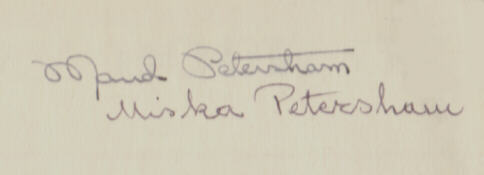 Maud Petersham
Miska Petersham